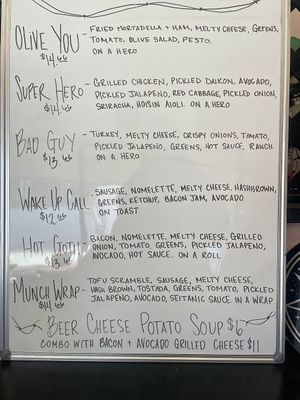 OLIVE YOU - FRIED MORTADELLA + HAM, MELTY CHEESE, GREENS,
$14.66 TOMATO, OLIVE SALAD, PESTO.
ON A HERO
SUPER HERO - GRILLED CHICKEN, PICKLED DAIKON, AVOCADO,
$14.66 PICKLED JALAPENO, RED CABBAGE, PICKLED ONION,
SRIRACHA, HOISIN AIOLI. ON A HERO
BAD GUY - TURKEY, MELTY CHEESE, CRISPY ONIONS, TOMATO,
$13.66 PICKLED JALAPENO, GREENS, HOT SAUCE, RANCH
ON A HERO
WAKE UP CALL - SAUSAGE, NOMELETTE, MELTY CHEESE, HASHBROWN,
$12.66 GREENS, KETCHUP, BACON JAM, AVOCADO
ON TOAST
HOT GOTH - BACON, NOMELETTE, MELTY CHEESE, GRILLED
$13.66 ONION, TOMATO, GREENS, PICKLED JALAPENO,
AVOCADO, HOT SAUCE. ON A ROLL
MUNCH WRAP - TOFU SCRAMBLE, SAUSAGE, MELTY CHEESE,
$14.66 HASH BROWN, TOSTADA, GREENS, TOMATO, PICKLED
JALAPENO, AVOCADO, SEITANIC SAUCE. IN A WRAP
BEER CHEESE POTATO SOUP $6
COMBO WITH BACON + AVOCADO GRILLED CHEESE $11